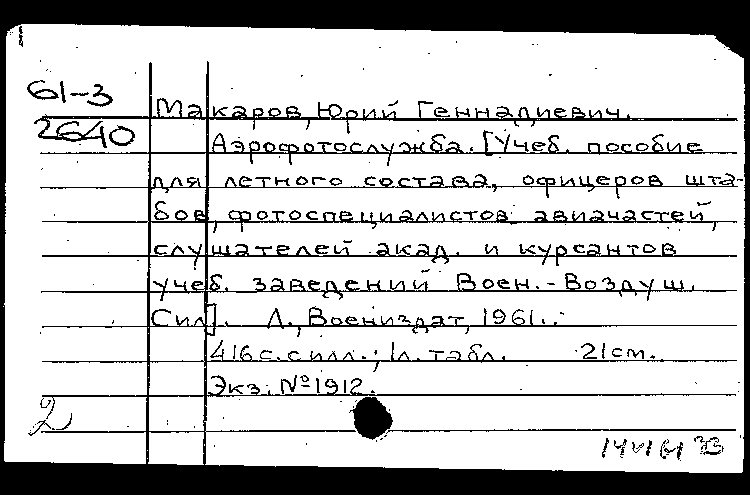 61-3
2640
Макаров, Юрий Геннадиевич.
Аэрофотослужба. [Учеб. пособие
для летного состава, офицеров шта-
бов, фотоспециалистов авиачастей,
слушателей акад. и курсантов
учеб. заведений Воен.-Воздуш.
Сил]. Л., Воениздат, 1961.
416 с. с илл.; 1 л. табл. 21 см.
Экз. № 1912.
2
14 VI 61